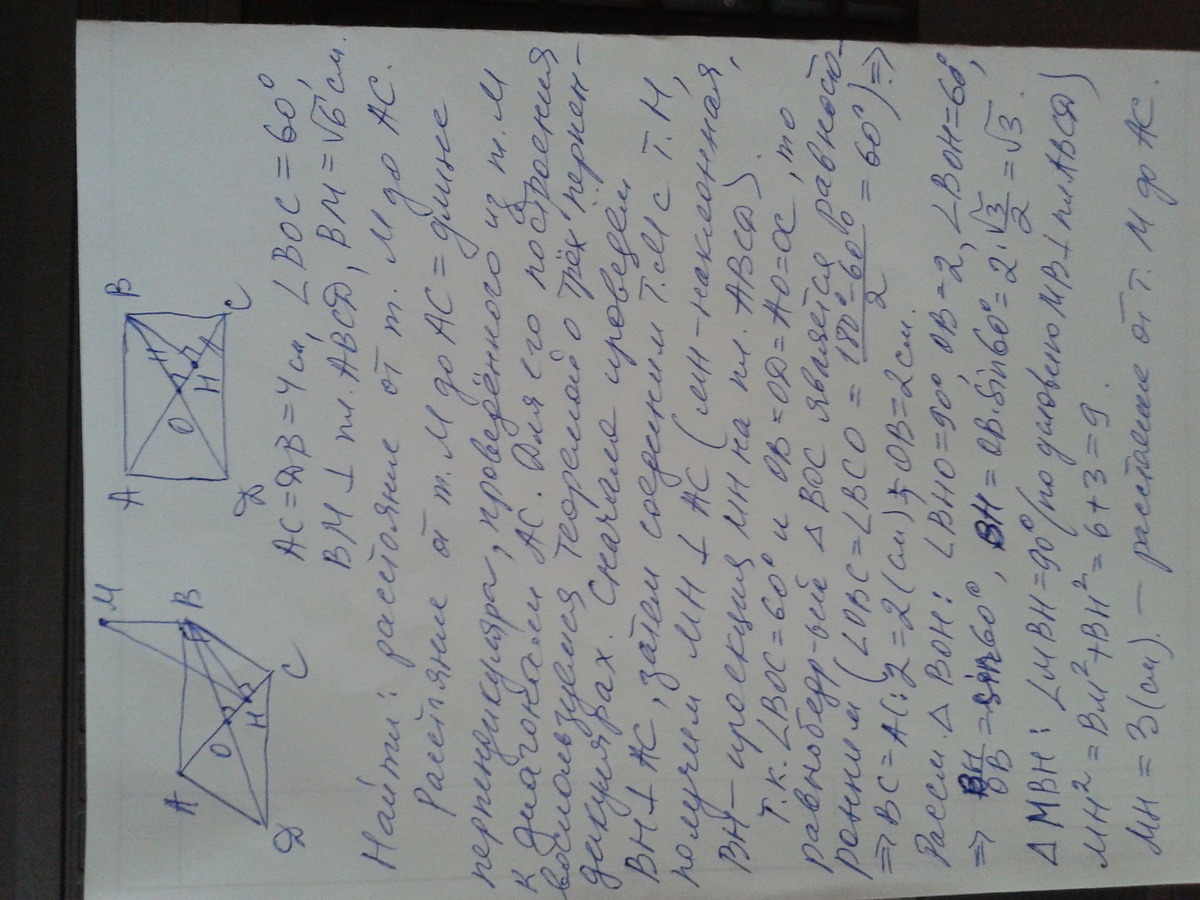 A B
O H
Д C
M
A B
O H
Д C
AC=ДB=4см, ∠BOC=60°
BM⊥ пл. ABCД, BM=√6 см.
Найти: расстояние от т. M до AC.
Расстояние от т. M до AC = длине
перпендикуляра, проведённого из т. M
к диагонали AC. Для его построения
воспользуемся теоремой о трёх перпен-
дикулярах. Сначала проведем
BH⊥AC, затем соединим т. M с т. H,
получим MH⊥AC (MH-наклонная,
BH-проекция MH на пл. ABCД).
Т.к. ∠BOC=60° и OB=OД=AO=OC, то
равнобедр-ый △BOC является равносто-
ронним (∠OBC=∠BCO= (180°-60°)/2 =60°) ⇒
⇒ BC=AC:2=2(см) OB=2см.
Рассм. △BOH: ∠BHO=90°, OB=2, ∠BOH=60°,
⇒ BH/OB = sin60°, BH=OB·Sin60°=2·√3/2=√3.
△MBH: ∠MBH=90° (по условию MB⊥пл. ABCД)
MH²=BM²+BH²=6+3=9.
MH=3(см). — расстояние от т. M до AC.